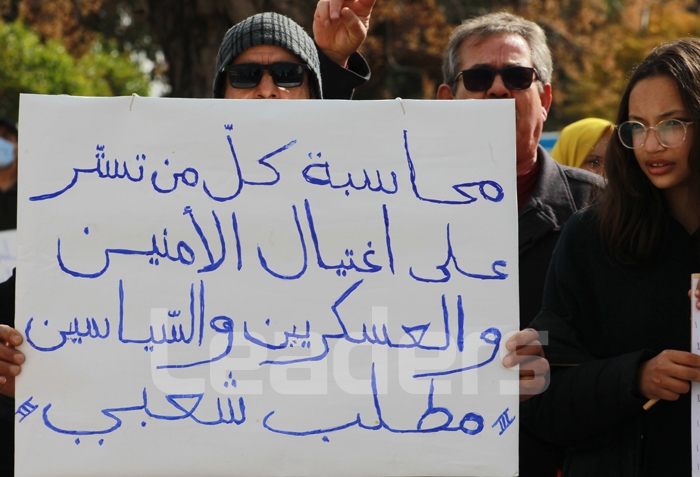 محاسبة كلّ من تستّر
على اغتيال الأمنين
والعسكريين والسّياسين
"مطلب شعبي"
Leaders